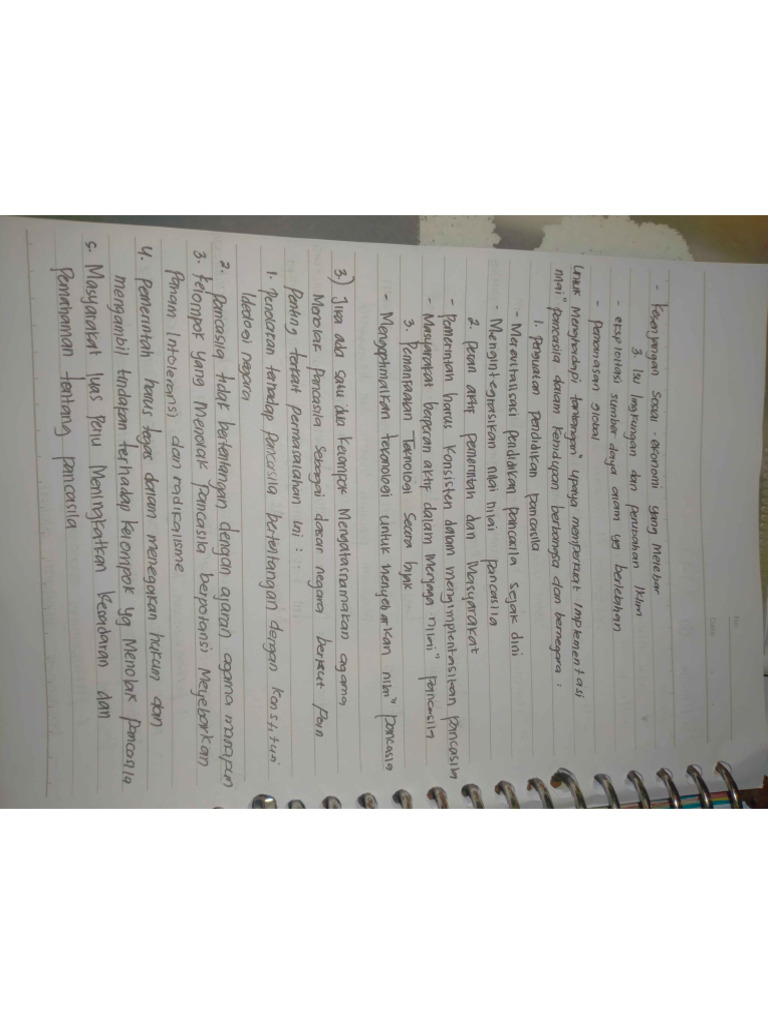 No.
Date
- Kesenjangan Sosial-ekonomi yang Melebar
3. Isu lingkungan dan perubahan Iklim
- eksploitasi sumber daya alam yg berlebihan
- Pemanasan global
Untuk Menghadapi tantangan" upaya memperkuat Implementasi
nilai" pancasila dalam Kehidupan berbangsa dan bernegara :
1. penguatan pendidikan pancasila
- Merevitalisasi pendidikan pancasila sejak dini
- Mengintegrasikan nilai nilai pancasila
2. peran aktif pemerintah dan Masyarakat
- Pemerintah harus Konsisten dalam mengimplentasikan pancasila
- Masyarakat berperan aktif dalam Menjaga nilai" Pancasila
3. Pemanfaatan Teknologi Secara bijak
- Mengoptimalkan teknologi untuk menyebarkan nilai" pancasila
3) Jika ada satu dua kelompok Mengatasnamakan agama,
Menolak Pancasila sebagai dasar negara berikut Poin
Penting terkait permasalahan ini :
1. Penolakan terhadap Pancasila bertentangan dengan Konstitusi
Ideologi negara
2. Pancasila tidak bertentangan dengan ajaran agama manapun
3. Kelompok yang Menolak Pancasila berpotensi Meyebarkan
Paham Intoleransi dan radikalisme
4. Pemerintah harus tegas dalam menegakan hukum dan
mengambil tindakan terhadap kelompok yg Menolak pancasila
5. Masyarakat luas perlu Meningkatkan Kesadaran dan
Pemahaman tentang pancasila